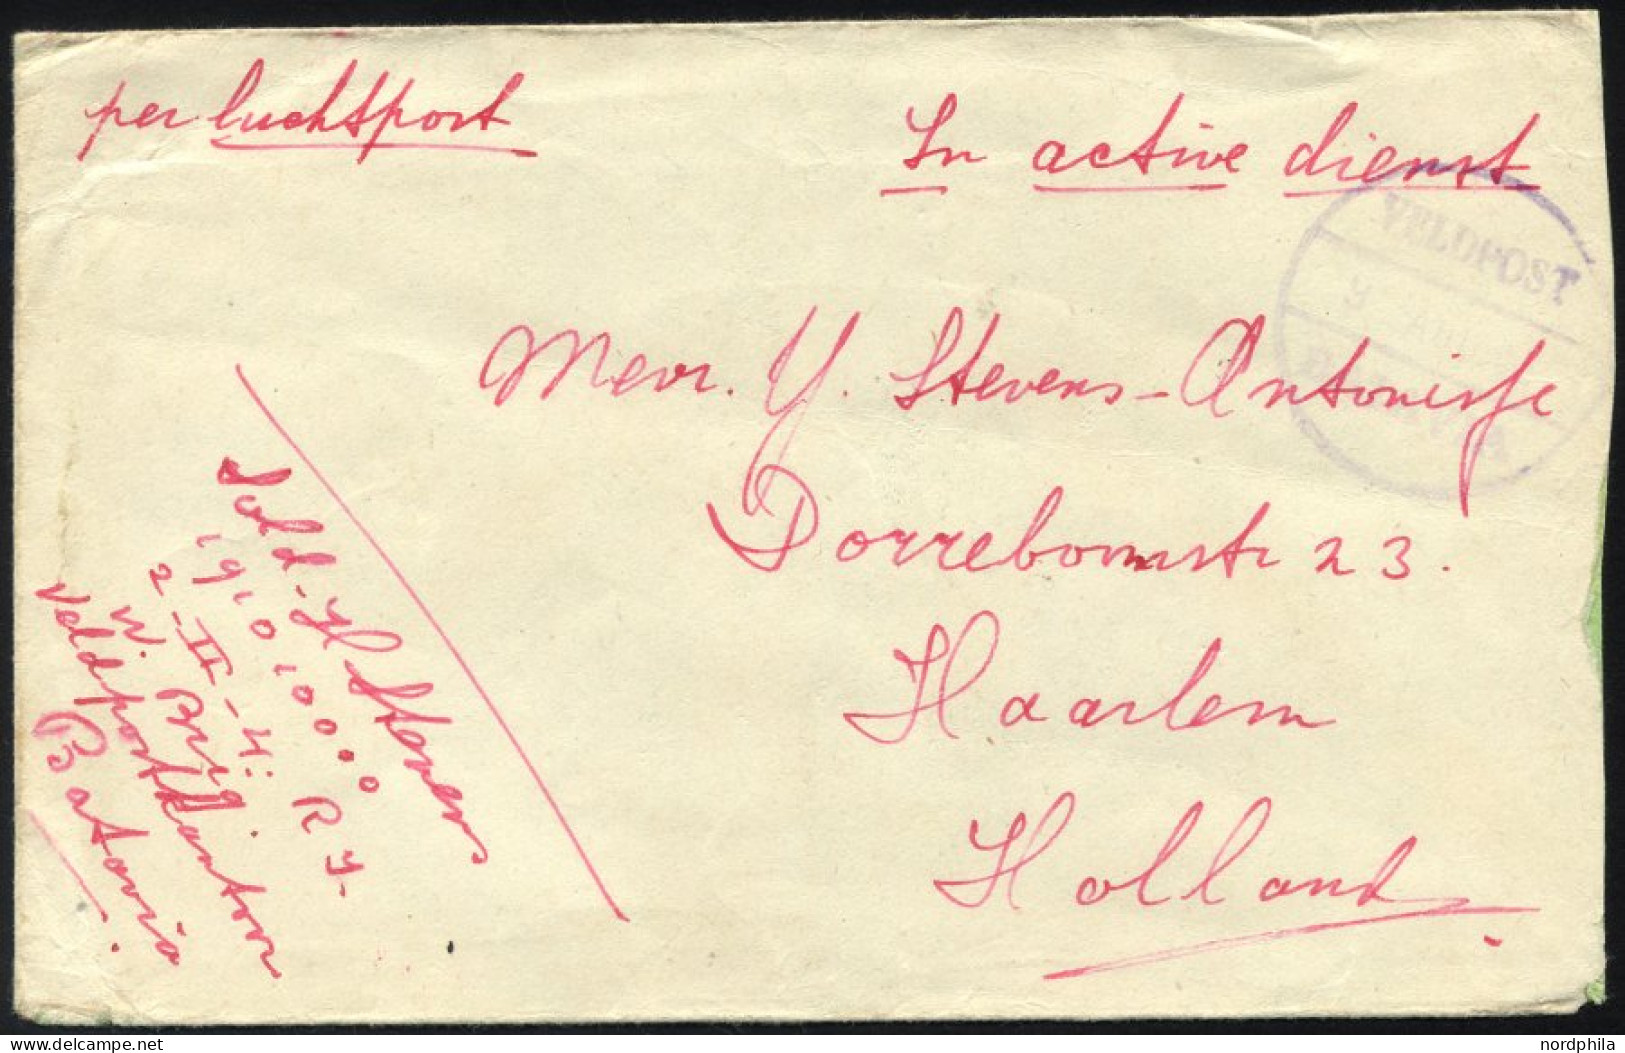 per luchtpost
In active dienst
VELDPOST
Mevr. Y. Stevens-Antonisse
23.
Haarlem
Holland
Sold. H Stevens
2-II-4. R I.
W. Brig.
Veldpostkantoor
Batavia
delcampe.net
nordphila